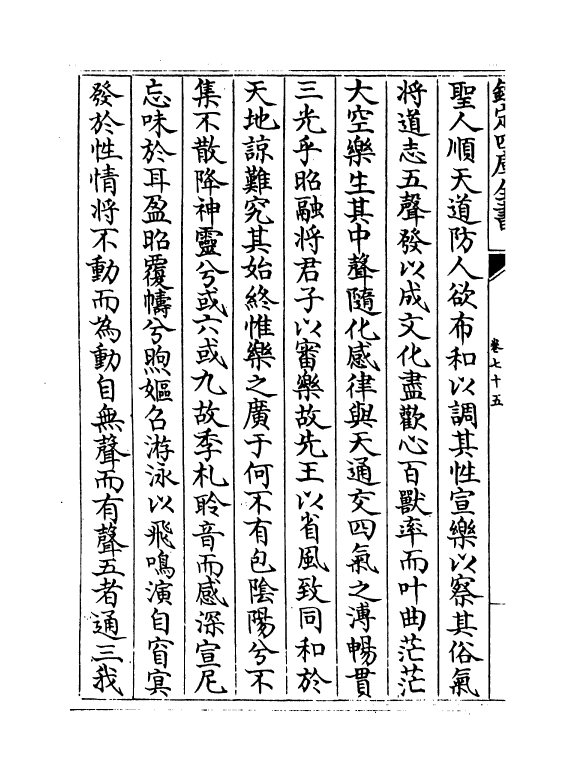 欽定四庫全書
卷七十五
聖人順天道防人欲布和以調其性宣樂以察其俗氣
将道志五聲發以成文化盡歡心百獸率而叶曲茫茫
大空樂生其中聲隨化感律與天通交四氣之溥暢貫
三光乎昭融将君子以審樂故先王以省風致同和於
天地諒難究其始終惟樂之廣于何不有包陰陽兮不
集不散降神靈兮或六或九故季札聆音而感深宣尼
忘味於耳盈昭覆幬兮煦嫗召游泳以飛鳴演自窅冥
發於性情将不動而為動自無聲而有聲五者通三我